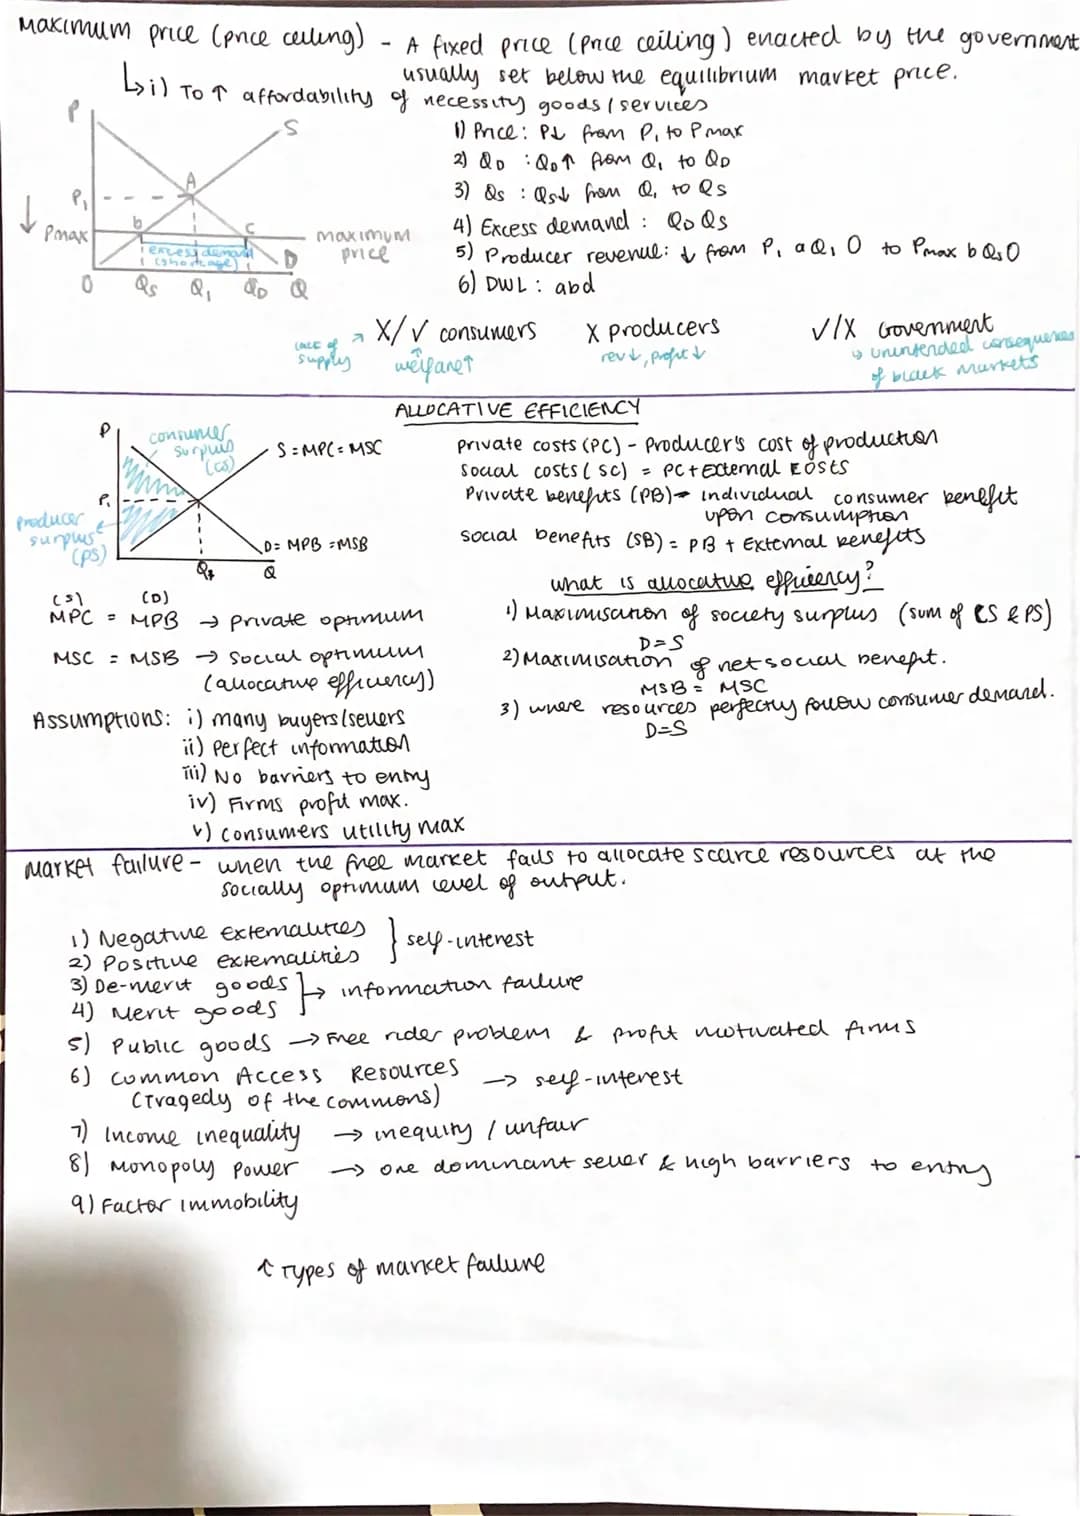 Maximum price (price ceiling) - A fixed price (Price ceiling) enacted by the government
usually set below the equilibrium market price.
↳ i) To ↑ affordability of necessity goods / services
P
S
A
P₁
↓ Pmax
b
c
maximum price
excess demand
(shortage)
D
O Qs Q₁ QD Q
1) Price: P↓ from P₁ to Pmax
2) QD : QD↑ from Q₁ to QD
3) Qs : Qs↓ from Q₁ to Qs
4) Excess demand : QD Qs
5) Producer revenue: ↓ from P₁ a Q₁ O to Pmax b Qs O
6) DWL : abd
X/✓ consumers X producers ✓/X Government
lack of supply
welfare↑
rev↓, profit↓
↳ unintended consequences
of black markets
ALLOCATIVE EFFICIENCY
P
consumer
surplus
(CS)
S = MPC = MSC
P₁
producer
surplus
(PS)
D = MPB = MSB
Q* Q
Private costs (PC) - Producer's cost of production
Social costs (SC) = PC + External Costs
Private benefits (PB) → individual consumer benefit
upon consumption
social benefits (SB) = PB + External benefits
(S) (D)
MPC = MPB → Private optimum
MSC = MSB → Social optimum
(allocative efficiency)
what is allocative efficiency?
1) Maximisation of society surplus (sum of CS & PS)
D=S
2) Maximisation of net social benefit.
MSB = MSC
3) where resources perfectly follow consumer demand.
D=S
Assumptions: i) many buyers/sellers
ii) Perfect information
iii) No barriers to entry
iv) Firms profit max.
v) Consumers utility max
Market failure - when the free market fails to allocate scarce resources at the
socially optimum level of output.
1) Negative Externalities
2) Positive externalities } self-interest
3) De-merit goods
4) Merit goods } → information failure
5) Public goods → Free rider problem & profit motivated firms
6) Common Access Resources → self-interest
(Tragedy of the commons)
7) Income inequality → inequity / unfair
8) Monopoly Power → one dominant seller & high barriers to entry
9) Factor immobility
↑ Types of market failure